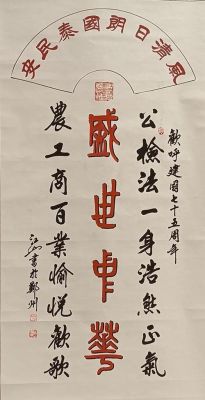 風清日朗國泰民安
歡呼建國七十五周年
公檢法一身浩然正氣
盛世中華
農工商百業愉悅歡歌
書於鄭州